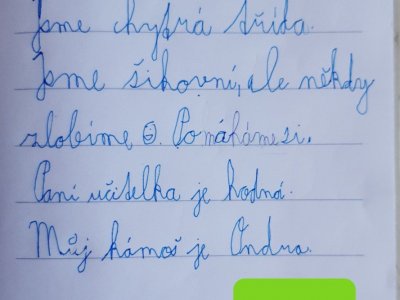 Jsme chytrá třída.
Jsme šikovní, ale někdy
zlobíme ☺. Pomáháme si.
Paní učitelka je hodná.
Můj kámoš je Ondra.